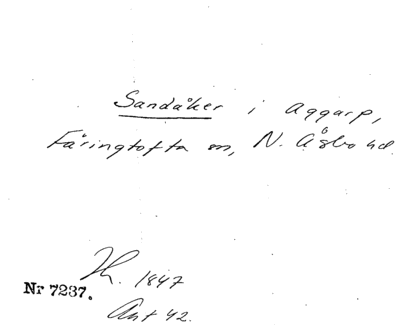 Sandåker i Aggarp,
Färingtofta sn, N. Åsbo hd.
1847
Nr 7237.
Ant 42.